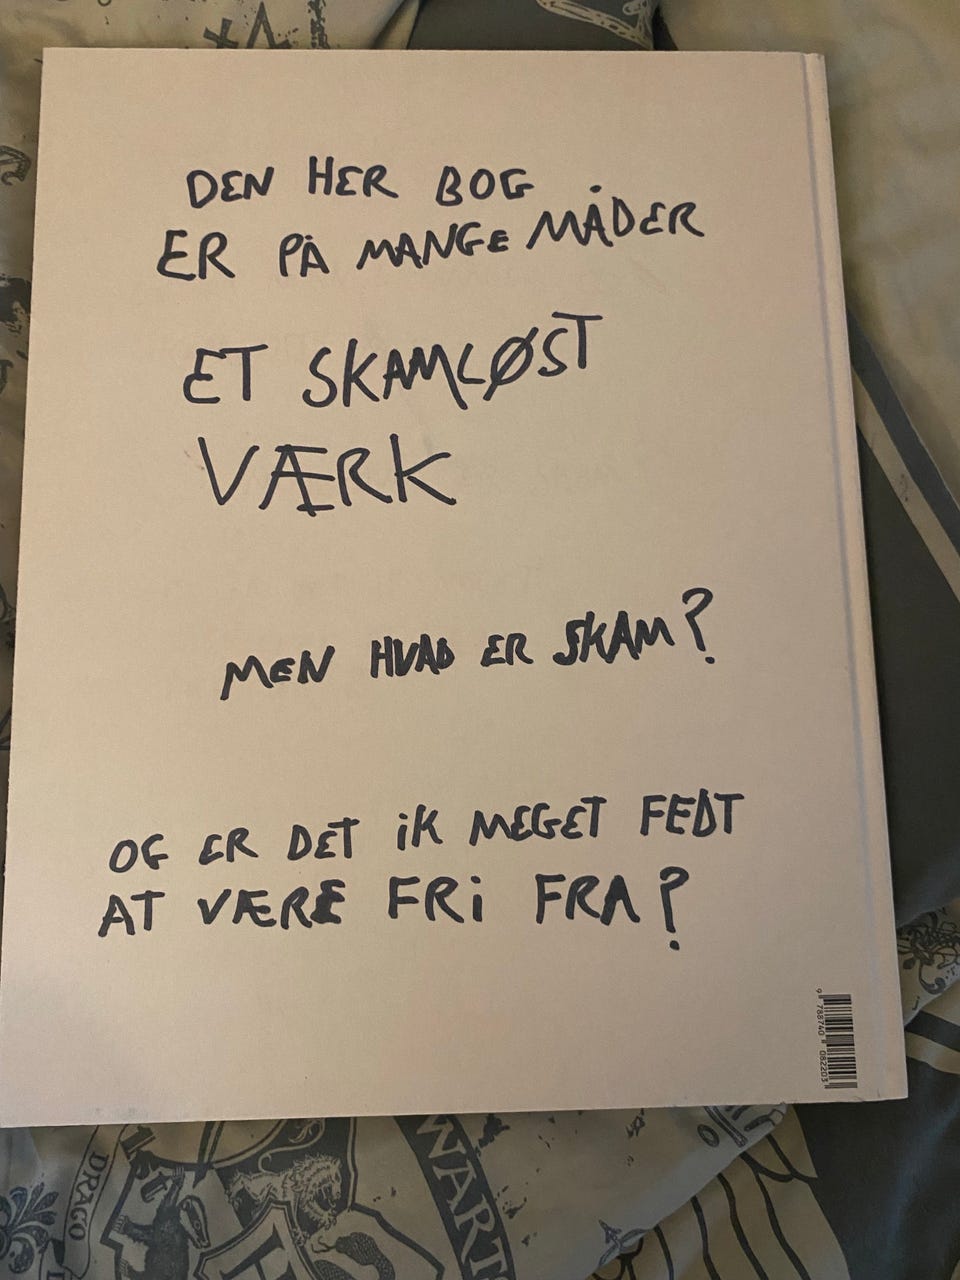 DEN HER BOG
ER PÅ MANGE MÅDER
ET SKAMLØST
VÆRK
MEN HVAD ER SKAM?
OG ER DET iK MEGET FEDT
AT VÆRE FRi FRA?
9 788740 082203
DRACO
WARTS